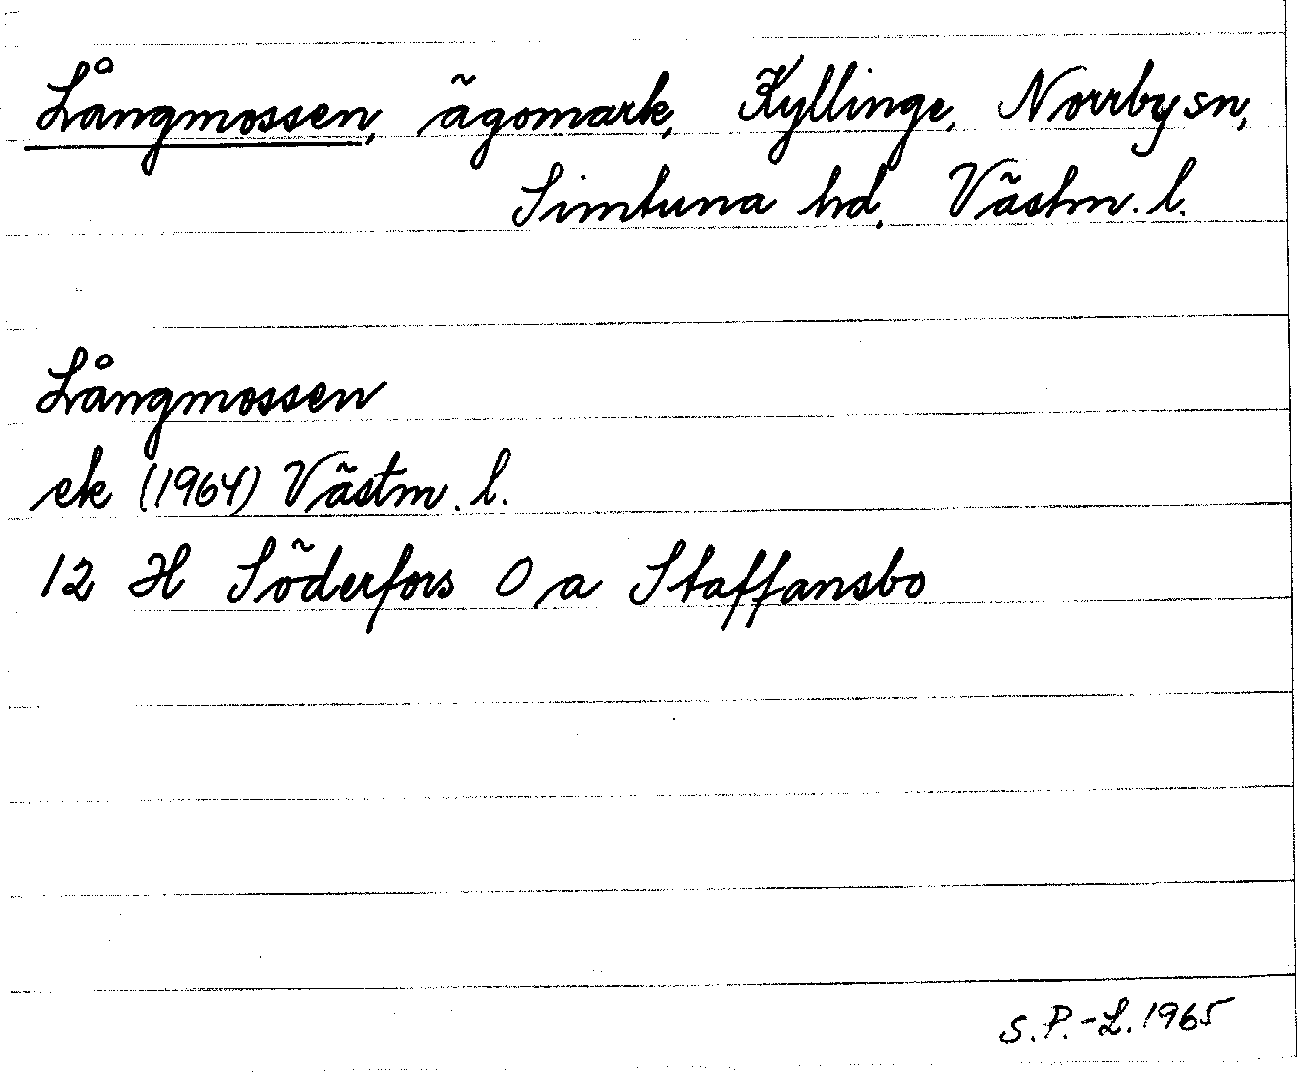 Långmossen, ägomark, Kyllinge, Norrby sn,
Simtuna hd, Västm. l.
Långmossen
ek (1964) Västm. l.
12 H Söderfors 0 a Staffansbo
S. P.-L. 1965